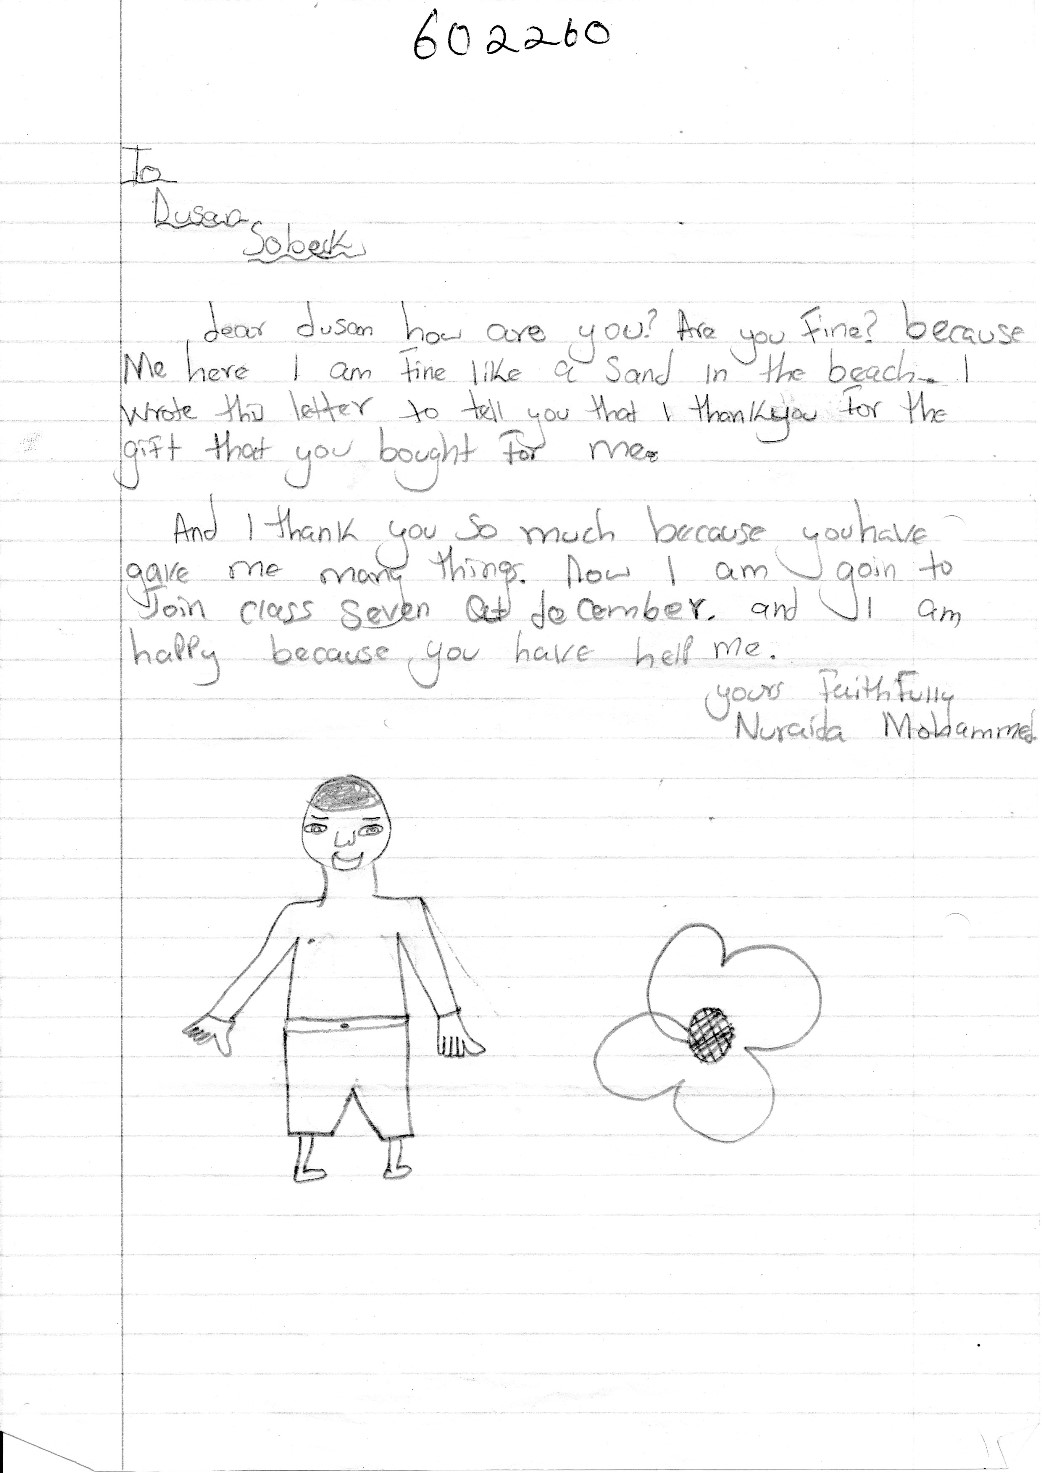 602260
To
Dusan
Sobeck
dear dusan how are you? Are you Fine? because
Me here I am Fine like a Sand in the beach. I
wrote this letter to tell you that I thankyou For the
gift that you bought For me.
And I thank you So much because youhave
gave me many things. Now I am goin to
Join class Seven at december. and I am
happy because you have help me.
yours Faithfully
Nuraida Mohammed